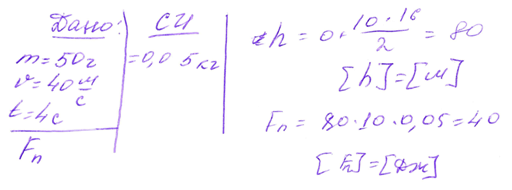 Дано:
m = 50г
v = 40 м/с
t = 4с
Fп
СИ
= 0,05 кг
h = 0 + (10 · 16)/2 = 80
[h] = [м]
Fп = 80 · 10 · 0,05 = 40
[Fп] = [Дж]